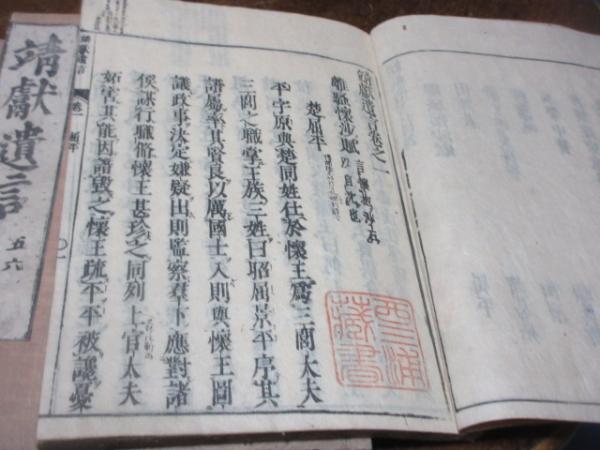 靖獻遺言卷之一
離騷懷沙賦
楚屈平
平字原與楚同姓仕於懷王爲三閭大夫
三閭之職掌王族三姓曰昭屈景平序其
譜屬率其賢良以厲國士入則與懷王圖
議政事決定嫌疑出則監察羣下應對諸
侯謀行職脩懷王甚珍之同列上官大夫
妬害其能因譖毀之懷王疏平平被讒憂
卷一 屈平 〇一
浦
藏書
靖獻遺言 五六